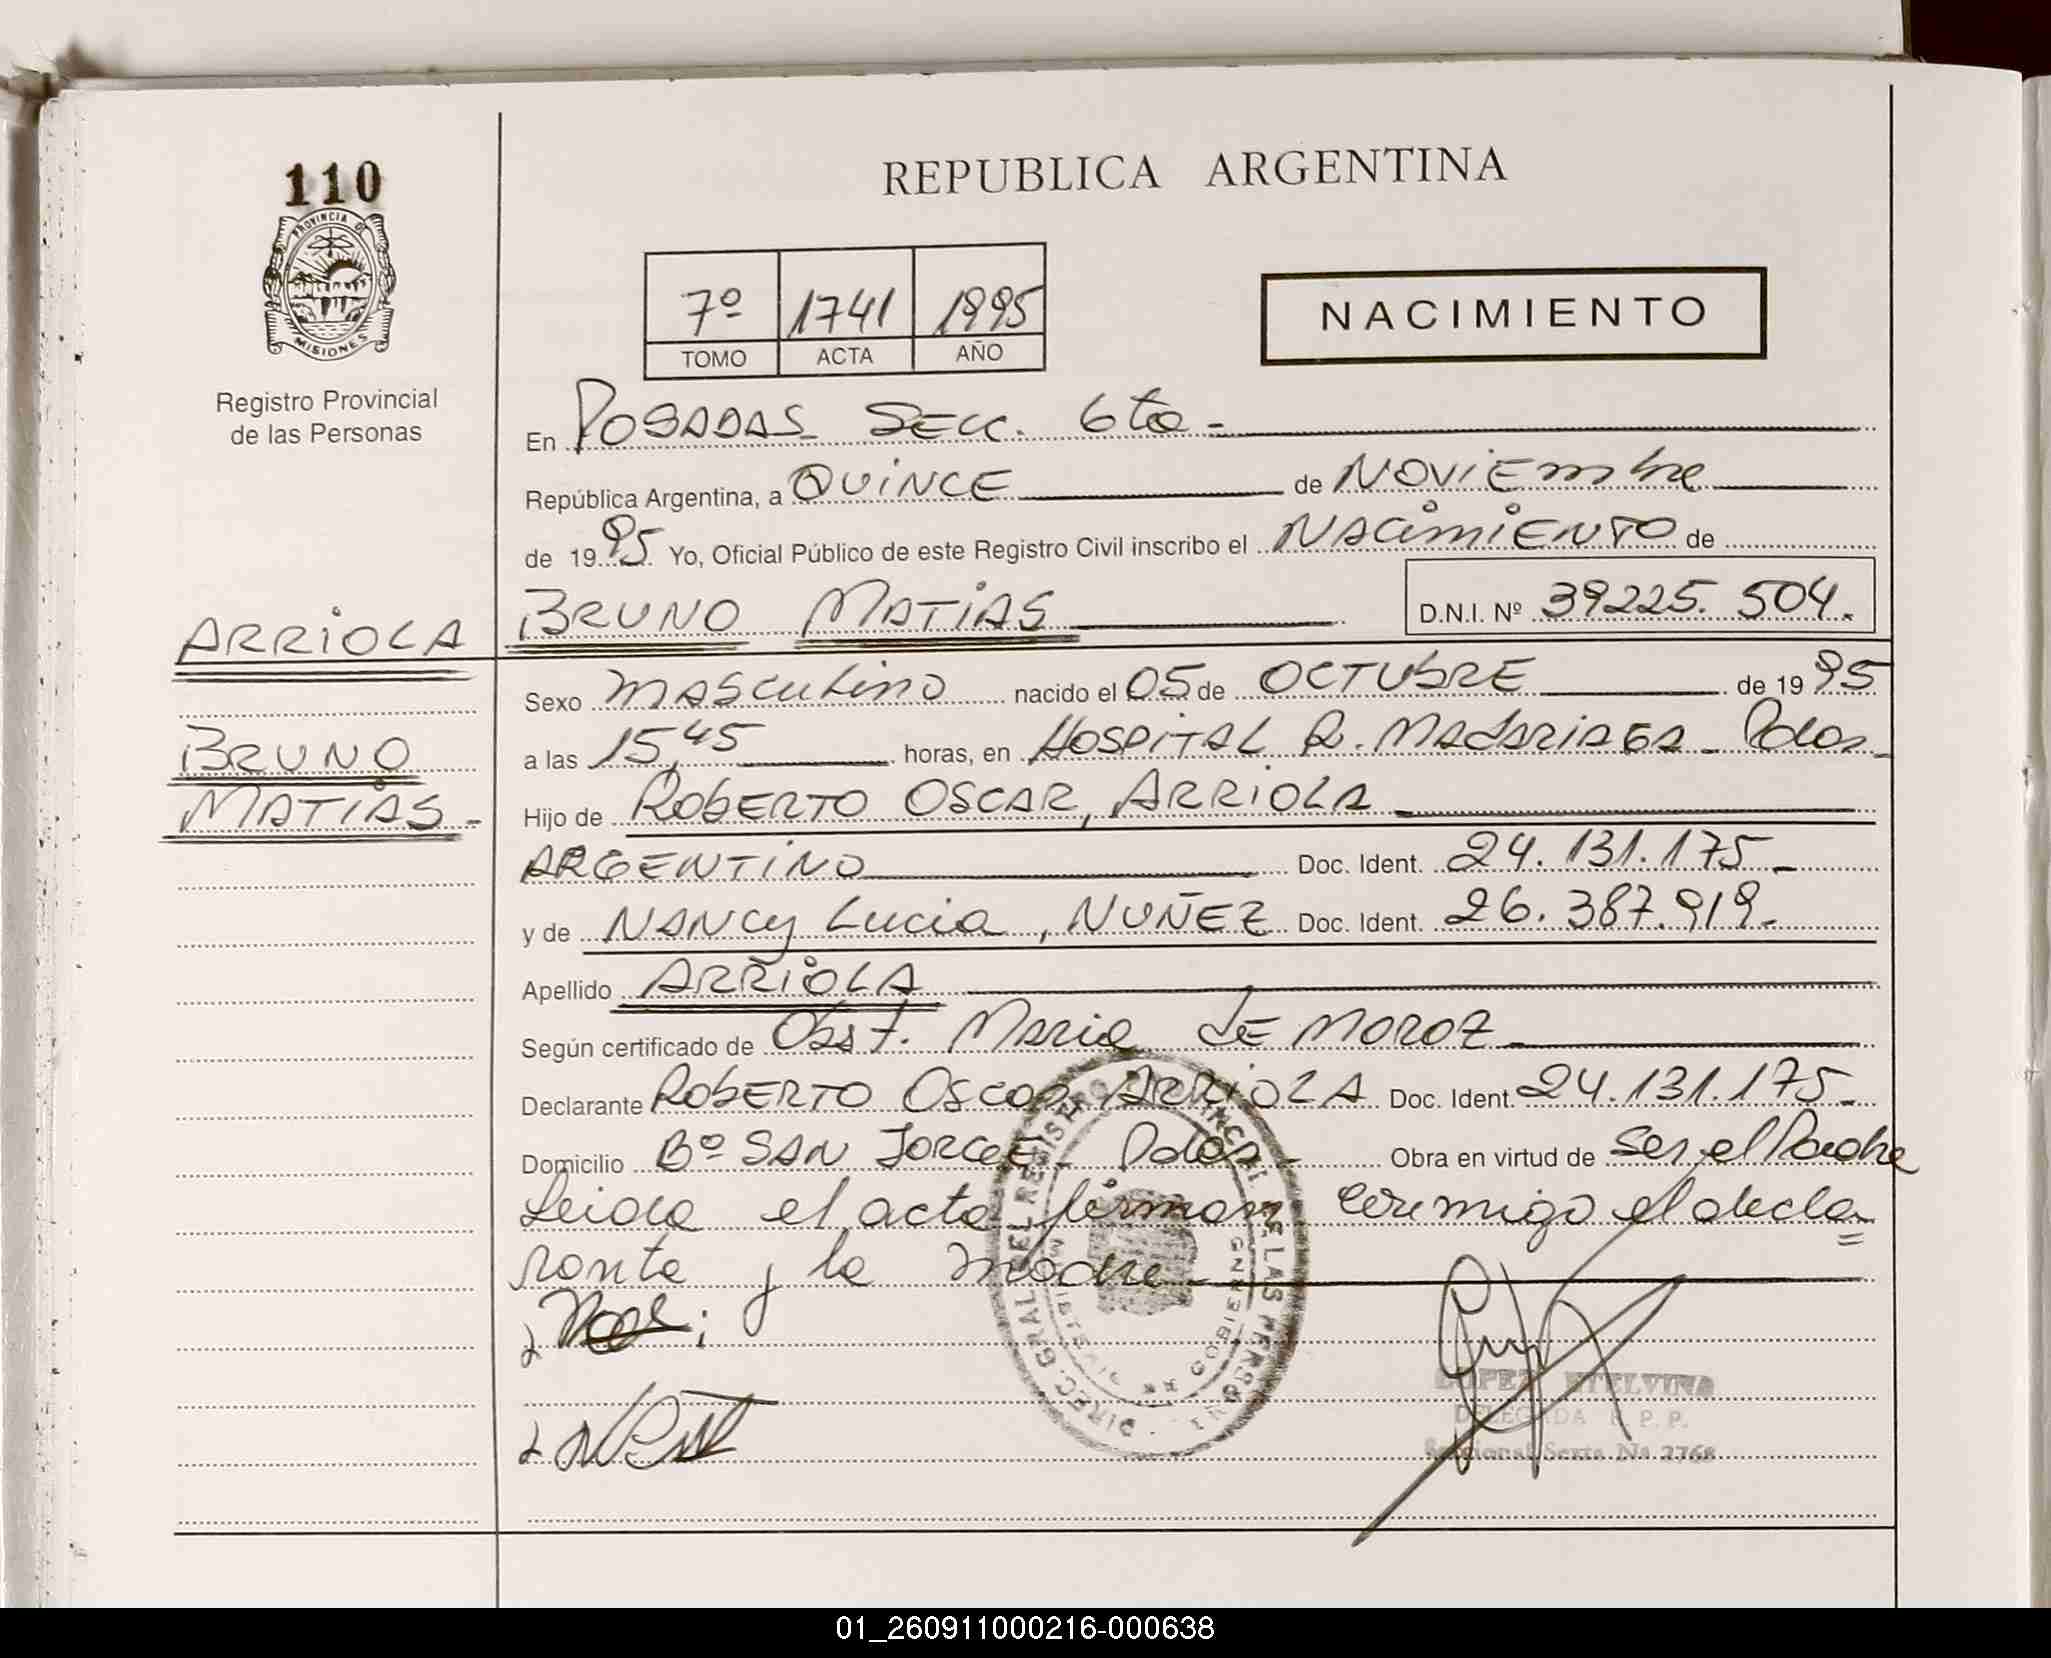 110
PROVINCIA DE
MISIONES
Registro Provincial
de las Personas
REPUBLICA ARGENTINA
7º 1741 1995
TOMO ACTA AÑO
NACIMIENTO
En POSADAS SECC. 6ta -
República Argentina, a QUINCE de NOViEmbre
de 1995 Yo, Oficial Público de este Registro Civil inscribo el NACimiENTO de
BRUNO MATiAS D.N.I. Nº 39225.504.
ARRiOLA
BRUNO
MATiAS -
Sexo mASCULino nacido el 05 de OCTUBRE de 1995
a las 15,45 horas, en HOSPiTAL R. MADARIAGA - Pdas -
Hijo de ROBERTO OSCAR, ARRIOLA
ARGENTiNO Doc. Ident. 24.131.175 -
y de NANCy Lucia, NUÑEZ Doc. Ident. 26.387.919 -
Apellido ARRiOLA
Según certificado de Obst. Maria de MOROZ
Declarante ROBERTO OSCAR ARRiOLA Doc. Ident. 24.131.175 -
Domicilio Bº SAN JORGE - Pdas - Obra en virtud de ser el Padre
Leida el acta firman conmigo el decla=
rante y la madre -
DIREC. GRAL DEL REGISTRO PROVINCIAL DE LAS PERSONAS
LOPEZ ETELVINA
DELEGADA R. P. P.
Seccional Sexta Na 2768
01_260911000216-000638